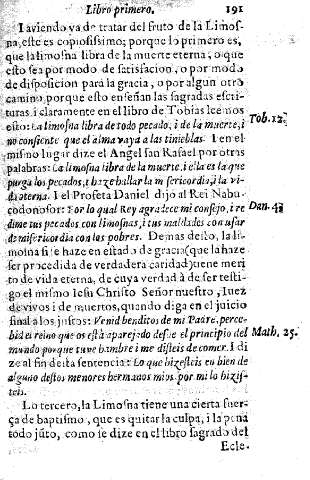 Libro primero. 191
Iaviendo ya de tratar del fruto de la Limos-
na, este es copiosissimo; porque lo primero es,
que la limosna libra de la muerte eterna; o que
esto sea por modo de satisfacion, o por modo
de disposicion para la gracia, o por algun otro
camino, porque esto enseñan las sagradas escri-
turas, i claramente en el libro de Tobias leemos
esto: La limosna libra de todo pecado, i de la muerte, i Tob. 12.
no consiente que el alma vaya a las tinieblas. I en el
mismo lugar dize el Angel san Rafael por otras
palabras: La limosna libra de la muerte, i ella es la que
purga los pecados, i haze hallar la misericordia, i la vi-
da eterna. I el Profeta Daniel dijo al Rei Nabu-
codonosor: Por lo qual Rey agradece mi consejo, i re Dan. 4.
dime tus pecados con limosnas, i tus maldades con usar
de misericordia con los pobres. Demas desto, la li-
mosna si se haze en estado de gracia (que la haze
ser procedida de verdadera caridad) tiene meri
to de vida eterna, de cuya verdad à de ser testi-
go el mismo Iesu Christo Señor nuestro, Iuez
de vivos i de muertos, quando diga en el juicio
final a los justos: Venid benditos de mi Padre, perce-
bid el reino que os està aparejado desde el principio del Math. 25.
mundo porque tuve hambre i me disteis de comer. I di
ze al fin desta sentencia: Lo que hizisteis en bien de
alguno destos menores hermanos mios, por mi lo hizis-
teis.
Lo tercero, la Limosna tiene una cierta fuer-
ça de baptismo, que es quitar la culpa, i la pena
todo jũto, como se dize en el libro sagrado del
Ecle-